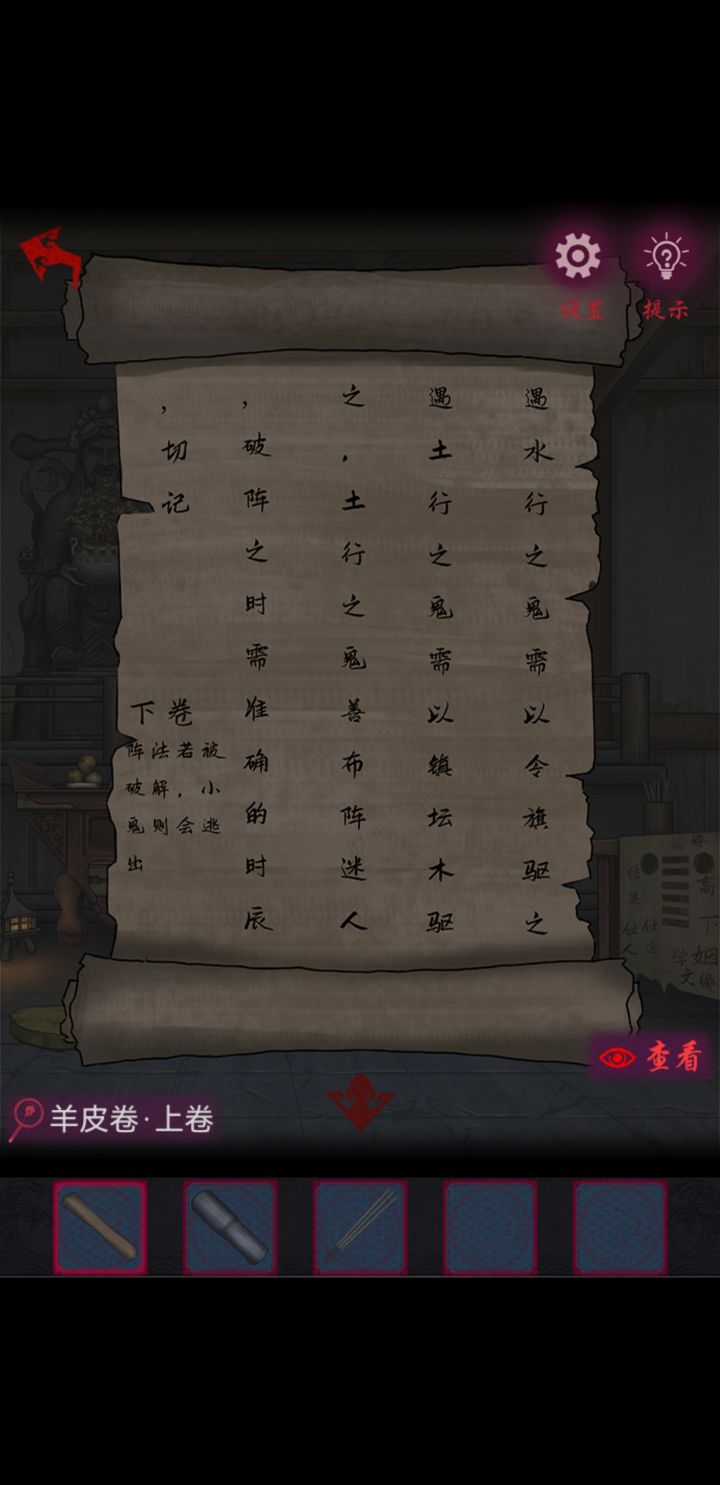 设置
提示
遇水行之鬼需以令旗驱之
遇土行之鬼需以镇坛木驱
之，土行之鬼善布阵迷人
，破阵之时需准确的时辰
，切记
下卷
阵法若被
破解，小
鬼则会逃
出
高
下
姻缘
学文
仕途
仕人
查看
羊皮卷·上卷